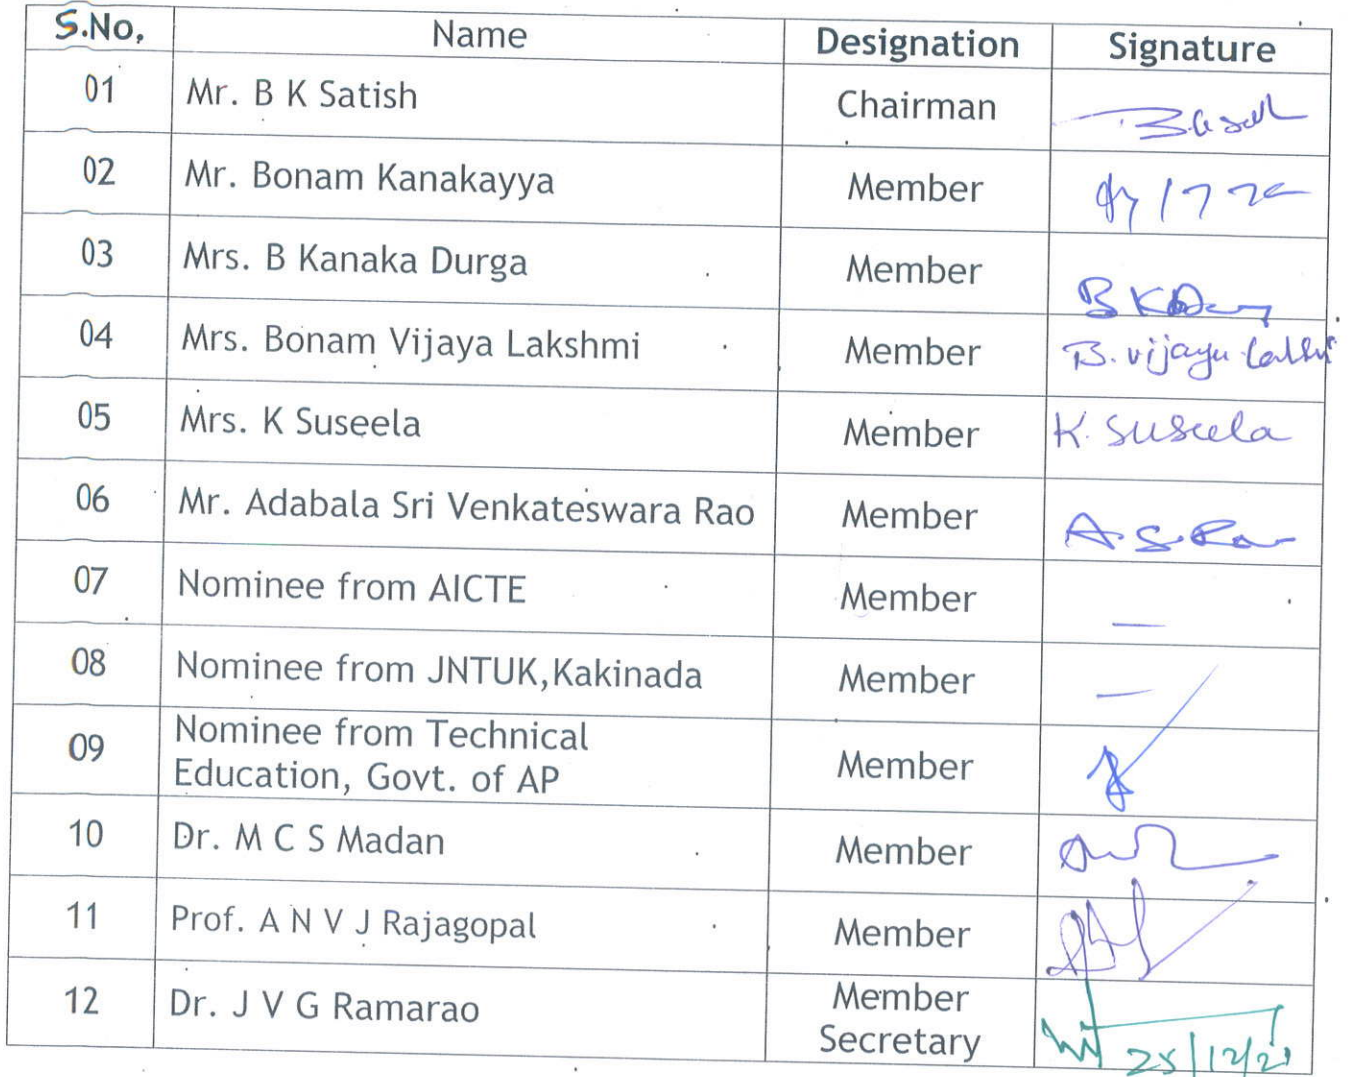 S.No, Name Designation Signature
01 Mr. B K Satish Chairman
02 Mr. Bonam Kanakayya Member
03 Mrs. B Kanaka Durga Member
B K
04 Mrs. Bonam Vijaya Lakshmi Member B. vijaya
05 Mrs. K Suseela Member K. Suseela
06 Mr. Adabala Sri Venkateswara Rao Member A.S.Rao
07 Nominee from AICTE Member —
08 Nominee from JNTUK,Kakinada Member —
09 Nominee from Technical
Education, Govt. of AP Member
10 Dr. M C S Madan Member
11 Prof. A N V J Rajagopal Member
12 Dr. J V G Ramarao Member
Secretary
25/12/21